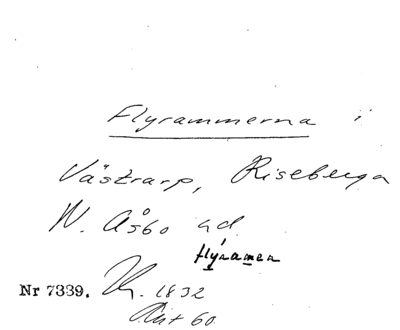 Flyrammerna i
Västrarp, Riseberga
N. Åsbo hd
flyramen
Nr 7339. 1832
60